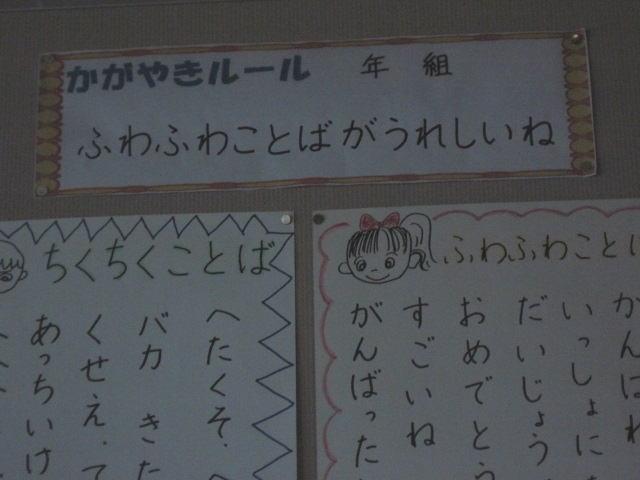 かがやきルール 年 組
ふわふわことばがうれしいね
ちくちくことば
へたくそ.
バカ きた
くせえ.て
あっちいけ
ふわふわことば
がんばれ
いっしょに
だいじょう
おめでとう
すごいね
がんばった